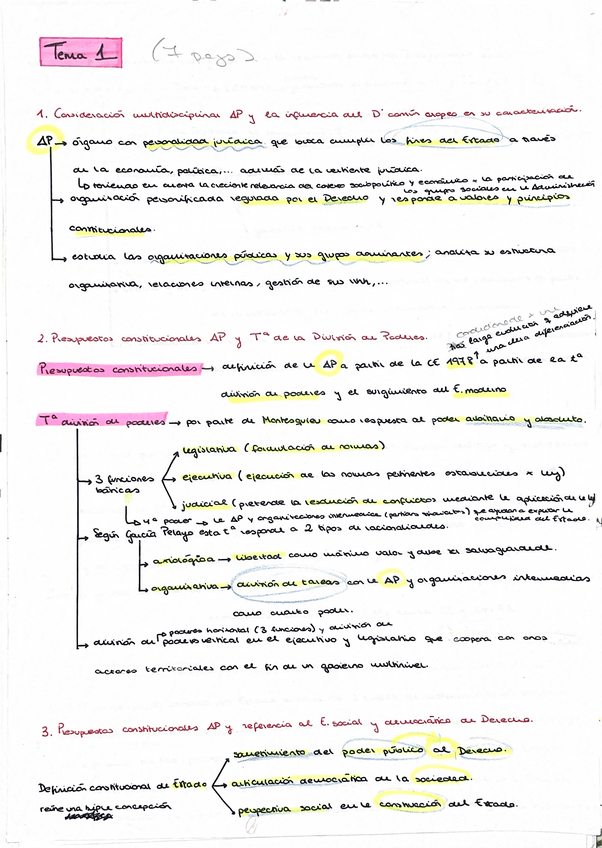 Tema 1 (7 pags)
1. Consideración multidisciplinar AP y la influencia del Dº común europeo en su caracterización.
AP → órgano con personalidad jurídica que busca cumplir los fines del Estado a través
de la economía, política,... además de la vertiente jurídica.
↳ teniendo en cuenta la creciente relevancia del contexto sociopolítico y económico y la participación de
los grupos sociales en la Administración
→ organización personificada regulada por el Derecho y responde a valores y principios
constitucionales.
→ estudia las organizaciones públicas y sus grupos dominantes; analiza su estructura
organizativa, relaciones internas, gestión de sus
2. Presupuestos constitucionales AP y Tª de la División de Poderes.
tras larga evolución y adquiere
una clara diferenciación.
Presupuestos constitucionales → definición de la AP a partir de la CE 1978 a partir de la tª
división de poderes y el surgimiento del E. moderno
Tª división de poderes → por parte de Montesquieu como respuesta al poder arbitrario y absoluto.
→ 3 funciones básicas
legislativa (formulación de normas)
ejecutiva (ejecución de las normas pertinentes establecidas x ley)
judicial (pretende la resolución de conflictos mediante la aplicación de la ley)
↳ 4º poder → la AP y organizaciones intermedias (partidos, sindicatos) que ayudan a explicar la
complejidad del Estado.
→ Según García Pelayo esta tª responde a 2 tipos de racionalidades.
→ axiológica → libertad como máximo valor y debe ser salvaguardada.
→ organizativa → división de tareas con la AP y organizaciones intermedias
como cuarto poder.
→ división de poderes horizontal (3 funciones) y división de
poderes vertical en el ejecutivo y legislativo que coopera con otros
actores territoriales con el fin de un gobierno multinivel.
3. Presupuestos constitucionales AP y referencia al E. social y democrático de Derecho.
Definición constitucional de Estado
reúne una triple concepción
sometimiento del poder público al Derecho.
articulación democrática de la sociedad.
perspectiva social en la construcción del Estado.